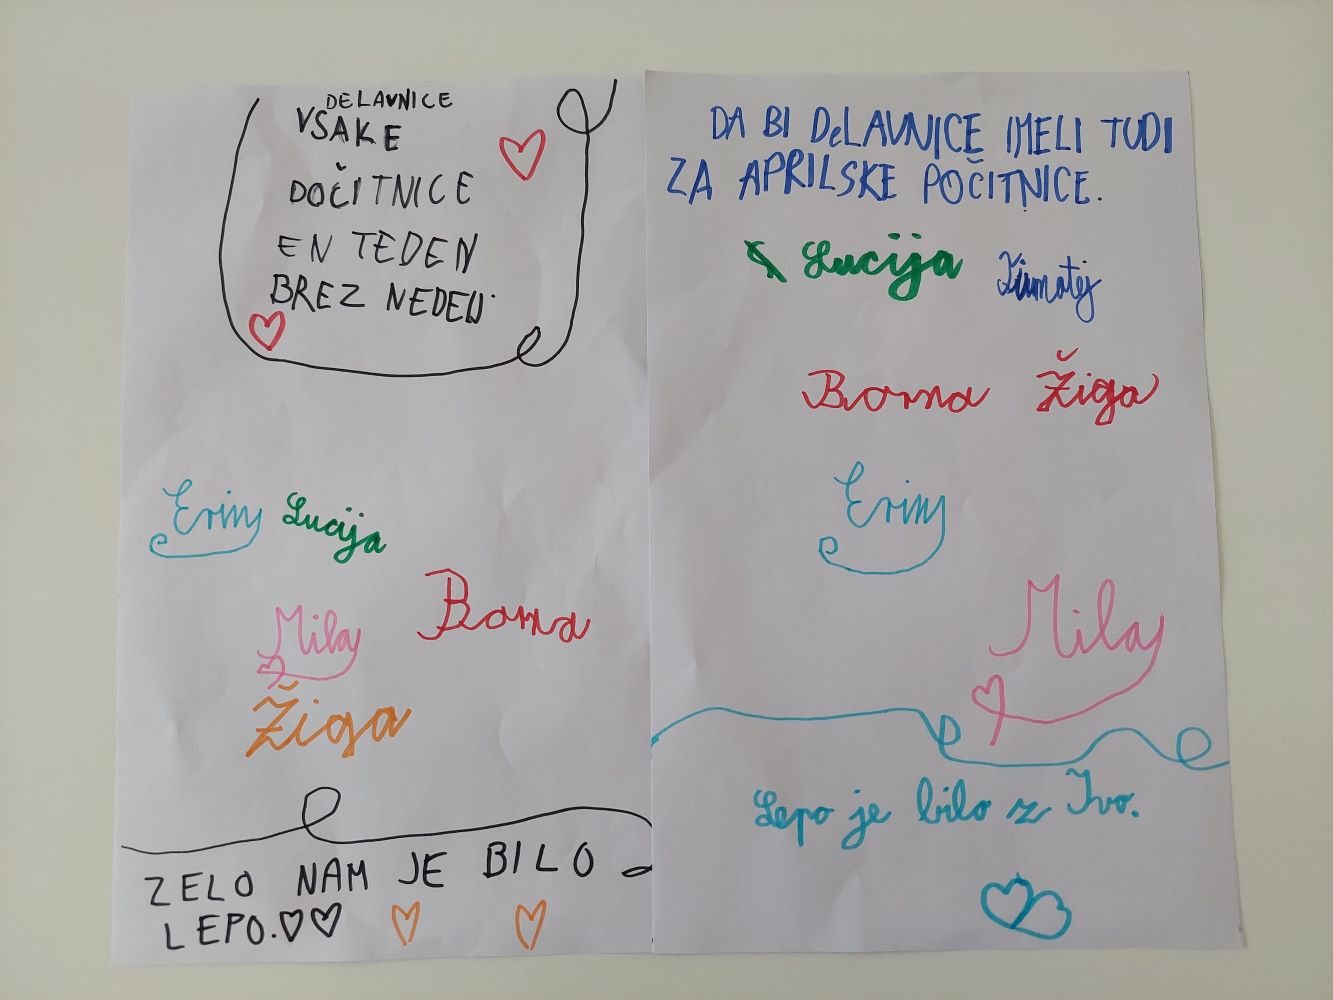 DELAVNICE
VSAKE
POČITNICE
EN TEDEN
BREZ NEDELJ.
Erin Lucija
Mila
Borna
Žiga
ZELO NAM JE BILO
LEPO.
DA BI DeLAVNICE IMELI TUDI
ZA APRILSKE POČITNICE.
Lucija Timotej
Borna Žiga
Erin
Mila
Lepo je bilo z Ivo.